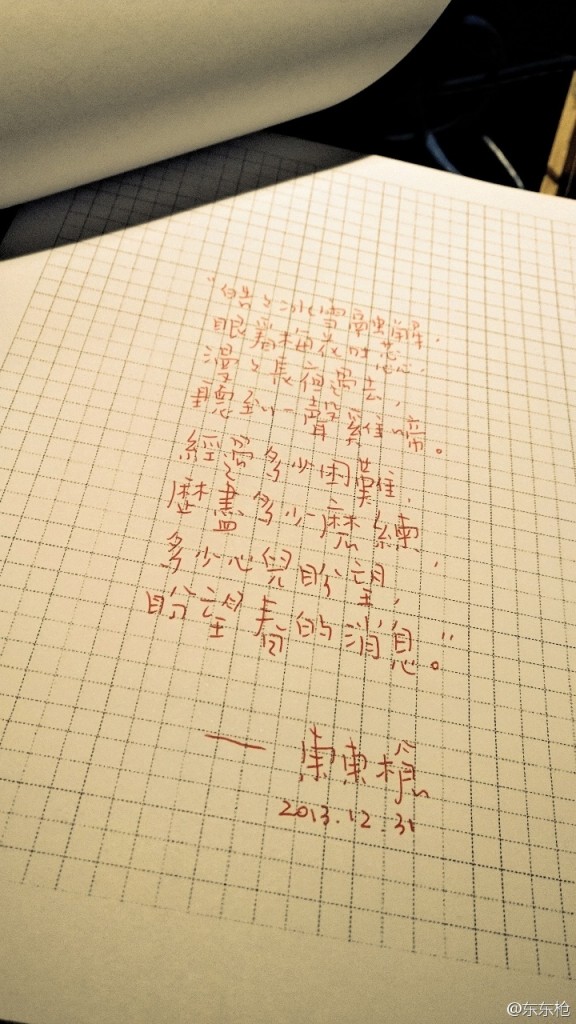 "皚々冰雪融解，
眼看梅花吐蕊，
漫々長夜過去，
聽到一聲雞啼。
經受多少困難，
歷盡多少磨練，
多少心兒盼望，
盼望春的消息。"
— 東東槍
2013.12.31
@东东枪